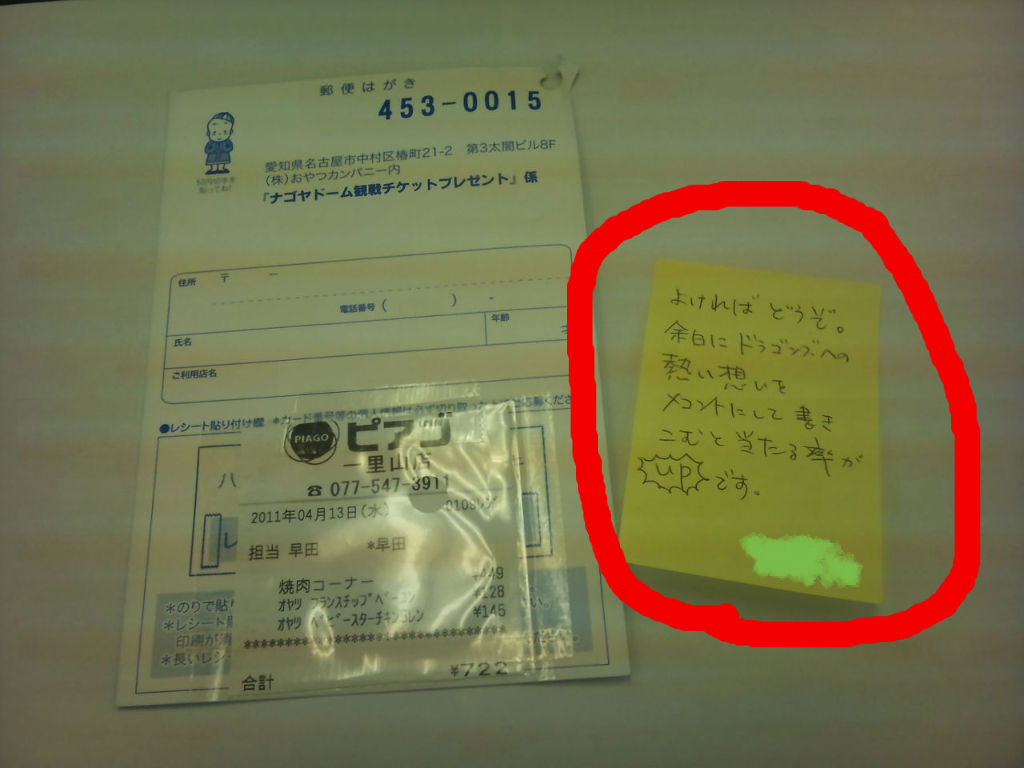 郵便はがき
453-0015
50円切手を
貼ってね!
愛知県名古屋市中村区椿町21-2 第3太閤ビル8F
(株)おやつカンパニー内
『ナゴヤドーム観戦チケットプレゼント』係
住所 〒 -
電話番号( ) -
氏名
年齢
才
ご利用店名
●レシート貼り付け欄 *カード番号等の個人情報は必ず切り取った上で
PIAGO ピアゴ
一里山店
☎ 077-547-3911
2011年04月13日(水) 0108レジ
担当 早田 *早田
焼肉コーナー ¥449
オヤツ フランスチップベーコン ¥128
オヤツ ベビースターチキンラレン ¥145
合計 ¥722
*のりで貼り
*レシート
印刷が消
*長いレシ
よければどうぞ。
余白にドラゴンズへの
熱い想いを
メコントにして書き
こむと当たる率が
upです。